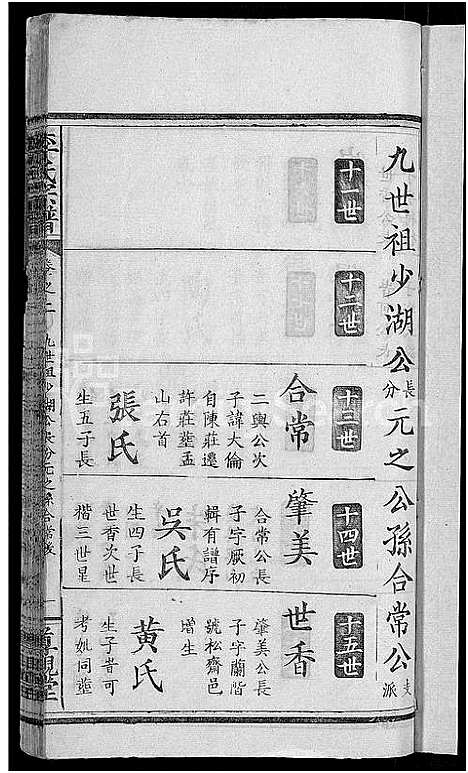 九世祖少湖公長分元之公孫合常公支派
十一世
十二世
十三世
合常
二與公次
子諱大倫
自陳莊遷
許莊塟盂
山右首
張氏
生五子長
十四世
肇美
合常公長
子字厥初
輯有譜序
吳氏
生四子長
世香次世
楷三世星
十五世
世香
肇美公長
子字蘭階
號松齋邑
增生
黄氏
生子昔可
考妣同塟
李氏宗譜
卷之二
九世祖少湖公長分元之孫合常派